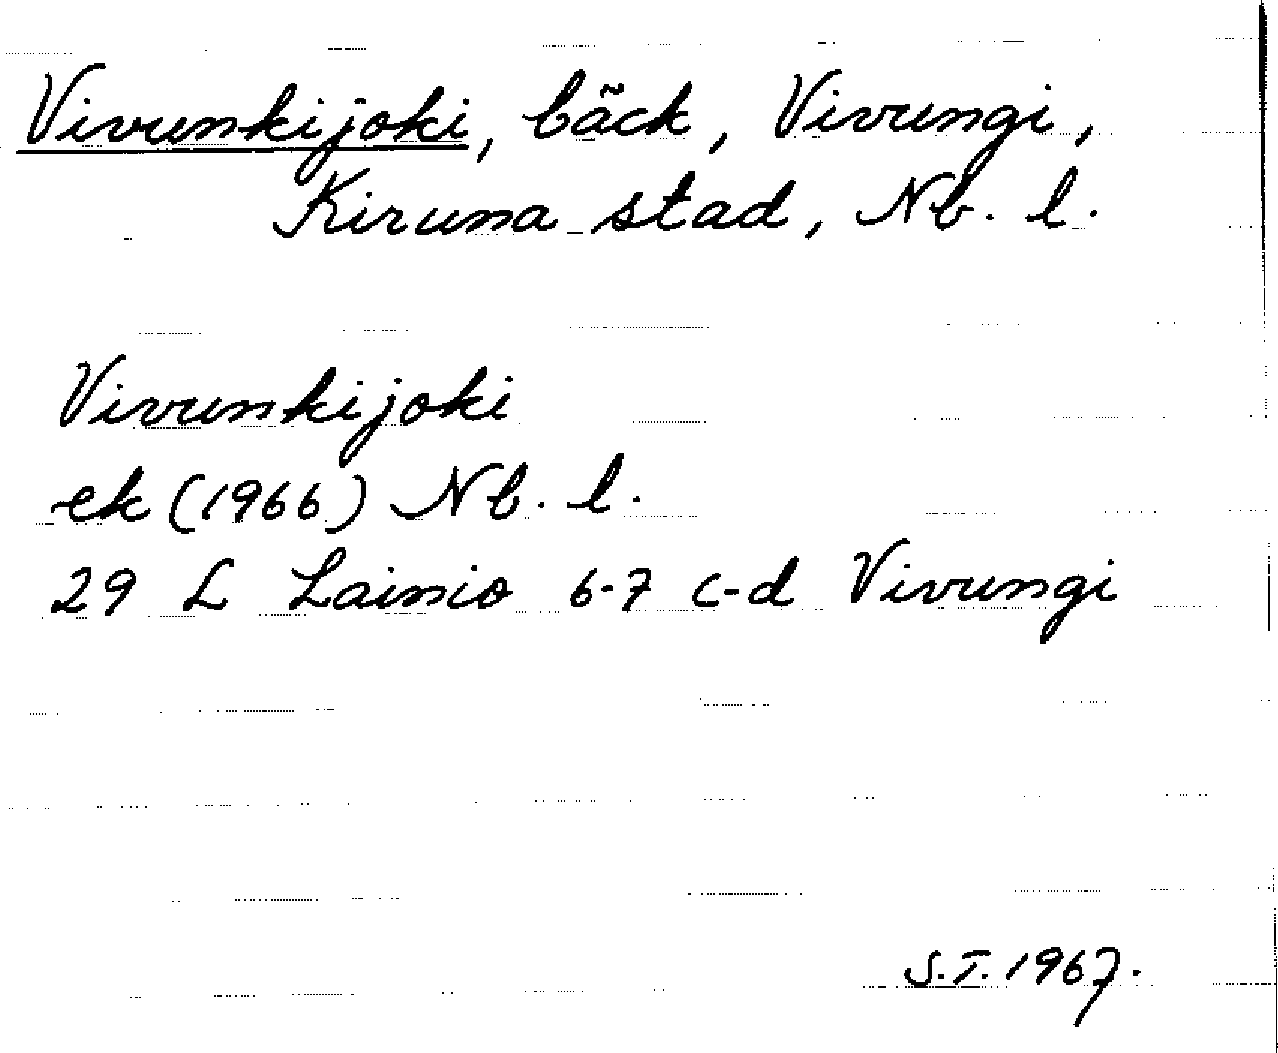 Vivunkijoki, bäck, Vivungi,
Kiruna stad, Nb. l.
Vivunkijoki
ek (1966) Nb. l.
29 L Lainio 6-7 c-d Vivungi
S.T. 1967.